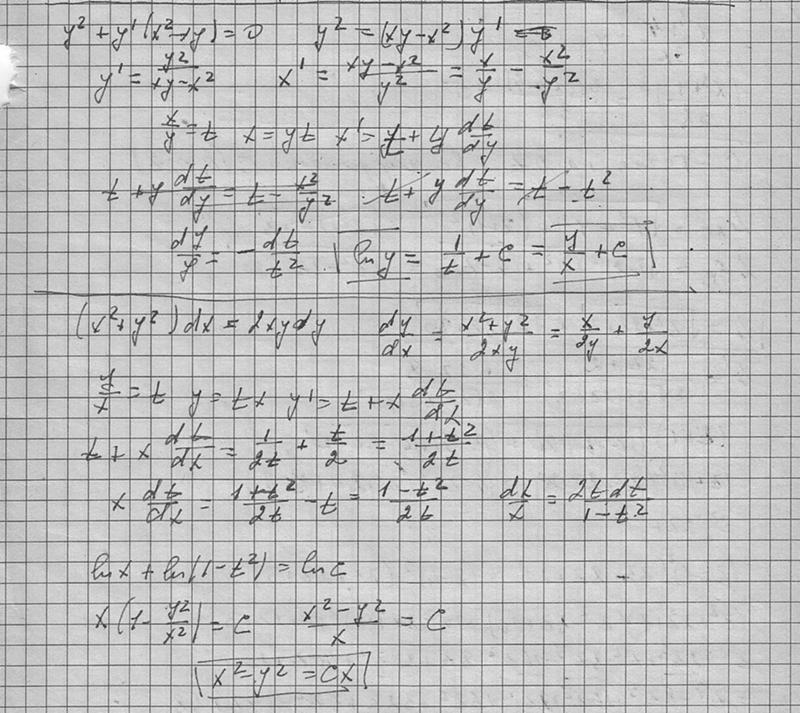 y² + y'(x² - xy) = 0   y² = (xy - x²) y' =
y' = y²/(xy - x²)   x' = (xy - x²)/y² = x/y - x²/y²
x/y = t   x = yt   x' = t + y dt/dy
t + y dt/dy = t - x²/y²   t + y dt/dy = t - t²
dy/y = - dt/t²   ln y = 1/t + C = y/x + C
(x² + y²) dx = 2xy dy   dy/dx = (x² + y²)/(2xy) = x/(2y) + y/(2x)
y/x = t   y = tx   y' = t + x dt/dx
t + x dt/dx = 1/(2t) + t/2 = (1 + t²)/(2t)
x dt/dx = (1 + t²)/(2t) - t = (1 - t²)/(2t)   dx/x = 2t dt/(1 - t²)
ln x + ln(1 - t²) = ln C
x(1 - y²/x²) = C   (x² - y²)/x = C
x² - y² = Cx